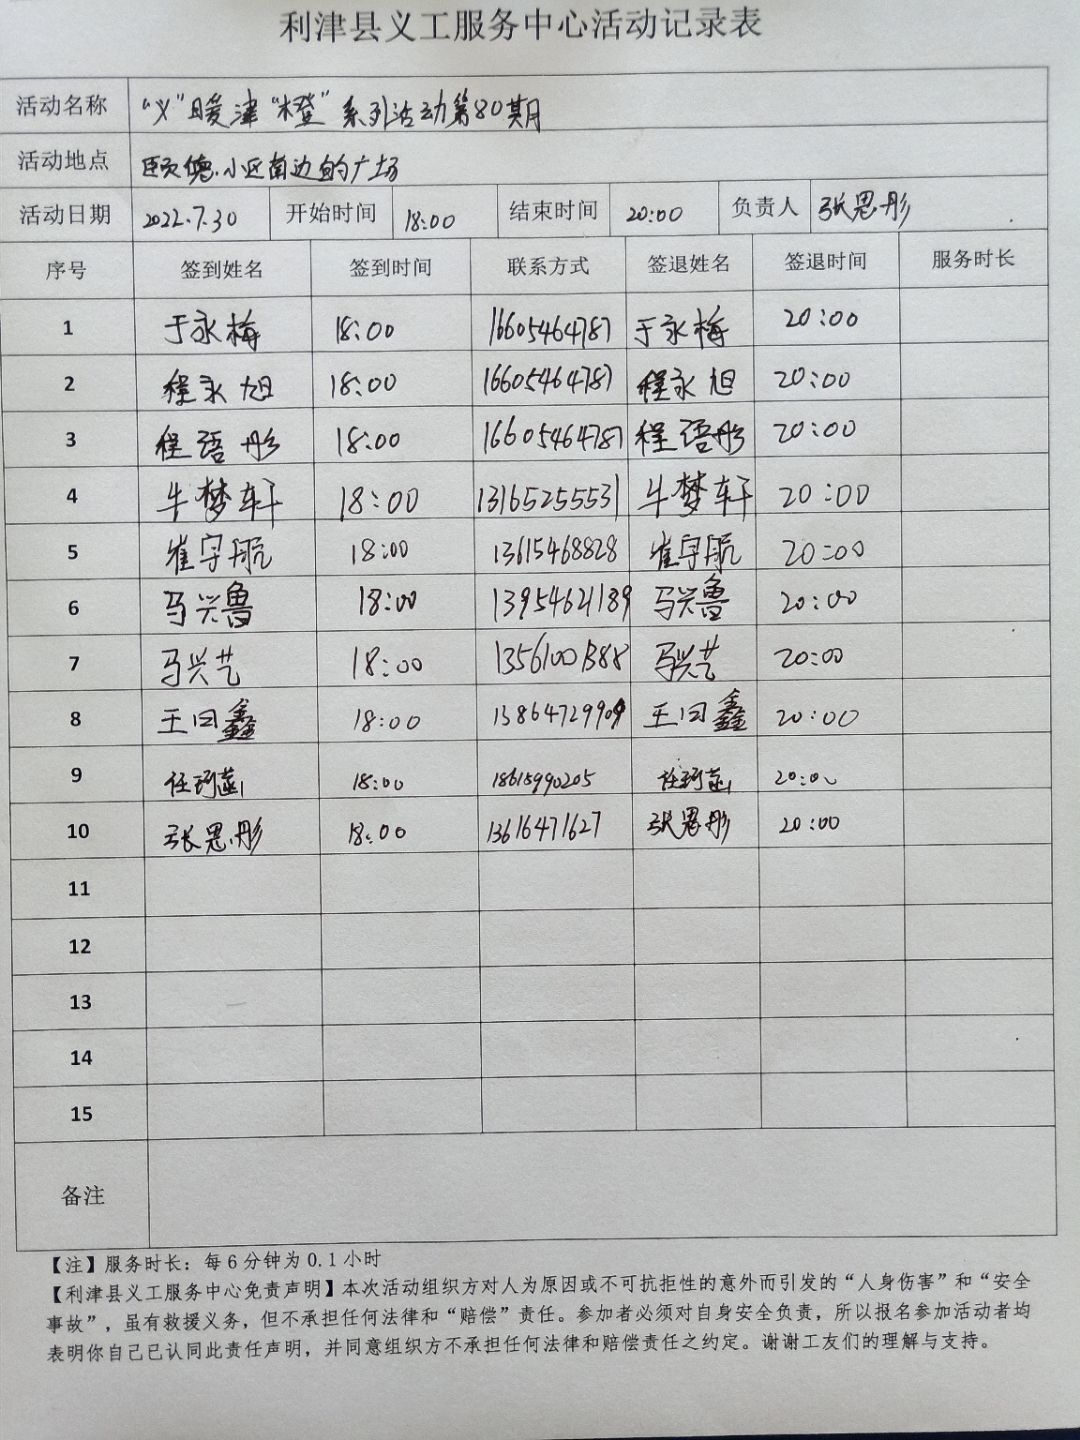 利津县义工服务中心活动记录表
活动名称 “义”暖津“橙”系列活动第80期
活动地点 颐德小区南边的广场
活动日期 2022.7.30 开始时间 18:00 结束时间 20:00 负责人 张思彤
序号 签到姓名 签到时间 联系方式 签退姓名 签退时间 服务时长
1 于永梅 18:00 16605464787 于永梅 20:00
2 程永旭 18:00 16605464787 程永旭 20:00
3 程语彤 18:00 16605464787 程语彤 20:00
4 牛梦轩 18:00 13165255531 牛梦轩 20:00
5 崔宇航 18:00 13615468828 崔宇航 20:00
6 马兴鲁 18:00 13954621189 马兴鲁 20:00
7 马兴艺 18:00 13561001388 马兴艺 20:00
8 王曰鑫 18:00 13864729909 王曰鑫 20:00
9 任珂菡 18:00 18615990205 任珂菡 20:00
10 张思彤 18:00 13616471627 张思彤 20:00
11
12
13
14
15
备注
【注】服务时长：每6分钟为0.1小时
【利津县义工服务中心免责声明】本次活动组织方对人为原因或不可抗拒性的意外而引发的“人身伤害”和“安全
事故”，虽有救援义务，但不承担任何法律和“赔偿”责任。参加者必须对自身安全负责，所以报名参加活动者均
表明你自己已认同此责任声明，并同意组织方不承担任何法律和赔偿责任之约定。谢谢工友们的理解与支持。